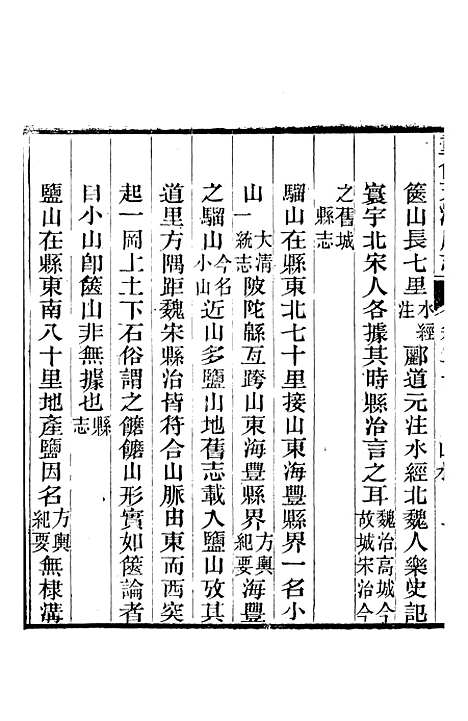 篋山長七里水經注酈道元注水經北魏人樂史記
寰宇北宋人各據其時縣治言之耳魏治高城今故城宋治今
之舊城縣志
騮山在縣東北七十里接山東海豐縣界一名小
山大清一統志陂陀緜亙跨山東海豐縣界方輿紀要海豐
之騮山今名小山近山多鹽山地舊志載入鹽山攷其
道里方隅距魏宋縣治皆符合山脈由東而西突
起一岡上土下石俗謂之饝饝山形實如篋論者
目小山卽篋山非無據也縣志
鹽山在縣東南八十里地產鹽因名方輿紀要無棣溝